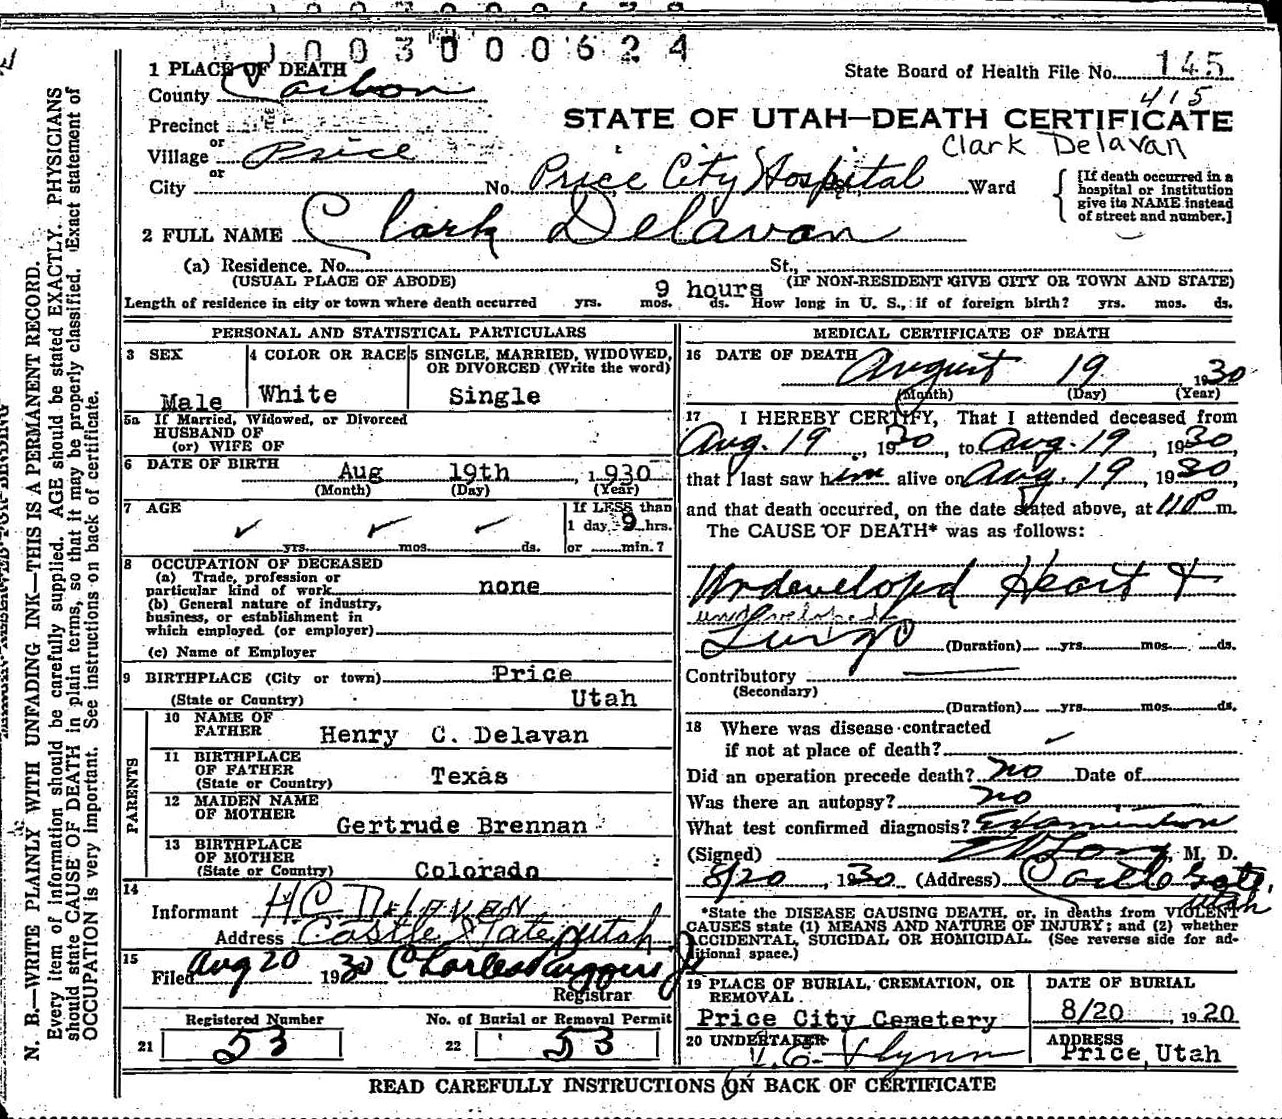 1003000624
1 PLACE OF DEATH
State Board of Health File No. 145
County Carbon
415
Precinct
STATE OF UTAH—DEATH CERTIFICATE
or
Village Price
Clark Delavan
or
City No. Price City Hospital St., Ward
[If death occurred in a
hospital or institution
give its NAME instead
of street and number.]
2 FULL NAME Clark Delavan
(a) Residence. No. St.,
(USUAL PLACE OF ABODE) (IF NON-RESIDENT GIVE CITY OR TOWN AND STATE)
9 hours
Length of residence in city or town where death occurred yrs. mos. ds. How long in U. S., if of foreign birth? yrs. mos. ds.
PERSONAL AND STATISTICAL PARTICULARS
3 SEX
Male
4 COLOR OR RACE
White
5 SINGLE, MARRIED, WIDOWED,
OR DIVORCED (Write the word)
Single
5a If Married, Widowed, or Divorced
HUSBAND OF
(or) WIFE OF
6 DATE OF BIRTH
Aug 19th, 1930
(Month) (Day) (Year)
7 AGE
yrs. mos. ds.
If LESS than
1 day 9 hrs.
or min.?
8 OCCUPATION OF DECEASED
(a) Trade, profession or
particular kind of work none
(b) General nature of industry,
business, or establishment in
which employed (or employer)
(c) Name of Employer
9 BIRTHPLACE (City or town) Price
(State or Country) Utah
PARENTS
10 NAME OF
FATHER Henry C. Delavan
11 BIRTHPLACE
OF FATHER
(State or Country) Texas
12 MAIDEN NAME
OF MOTHER
Gertrude Brennan
13 BIRTHPLACE
OF MOTHER
(State or Country) Colorado
14
Informant H.C. Delavan
Address Castle Gate, Utah
15
Filed Aug 20 1930 Charles Ruggeri Jr
Registrar
Registered Number
21 53
No. of Burial or Removal Permit
22 53
MEDICAL CERTIFICATE OF DEATH
16 DATE OF DEATH
August 19 1930
(Month) (Day) (Year)
17 I HEREBY CERTIFY, That I attended deceased from
Aug. 19, 1930, to Aug. 19, 1930,
that I last saw him alive on Aug. 19, 1930,
and that death occurred, on the date stated above, at 11 P m.
The CAUSE OF DEATH* was as follows:
Undeveloped Heart +
undeveloped
Lungs
(Duration) yrs. mos. ds.
Contributory
(Secondary)
(Duration) yrs. mos. ds.
18 Where was disease contracted
if not at place of death?
Did an operation precede death? no Date of
Was there an autopsy? no
What test confirmed diagnosis? Examination
(Signed) Long, M. D.
8/20, 1930 (Address) Castle Gate,
Utah
*State the DISEASE CAUSING DEATH, or, in deaths from VIOLENT
CAUSES state (1) MEANS AND NATURE OF INJURY; and (2) whether
ACCIDENTAL, SUICIDAL OR HOMICIDAL. (See reverse side for ad-
ditional space.)
19 PLACE OF BURIAL, CREMATION, OR
REMOVAL
Price City Cemetery
DATE OF BURIAL
8/20, 1920
20 UNDERTAKER
Flynn
ADDRESS
Price, Utah
READ CAREFULLY INSTRUCTIONS ON BACK OF CERTIFICATE
N. B.—WRITE PLAINLY WITH UNFADING INK—THIS IS A PERMANENT RECORD.
Every item of information should be carefully supplied. AGE should be stated EXACTLY. PHYSICIANS
should state CAUSE OF DEATH in plain terms, so that it may be properly classified. Exact statement of
OCCUPATION is very important. See instructions on back of certificate.